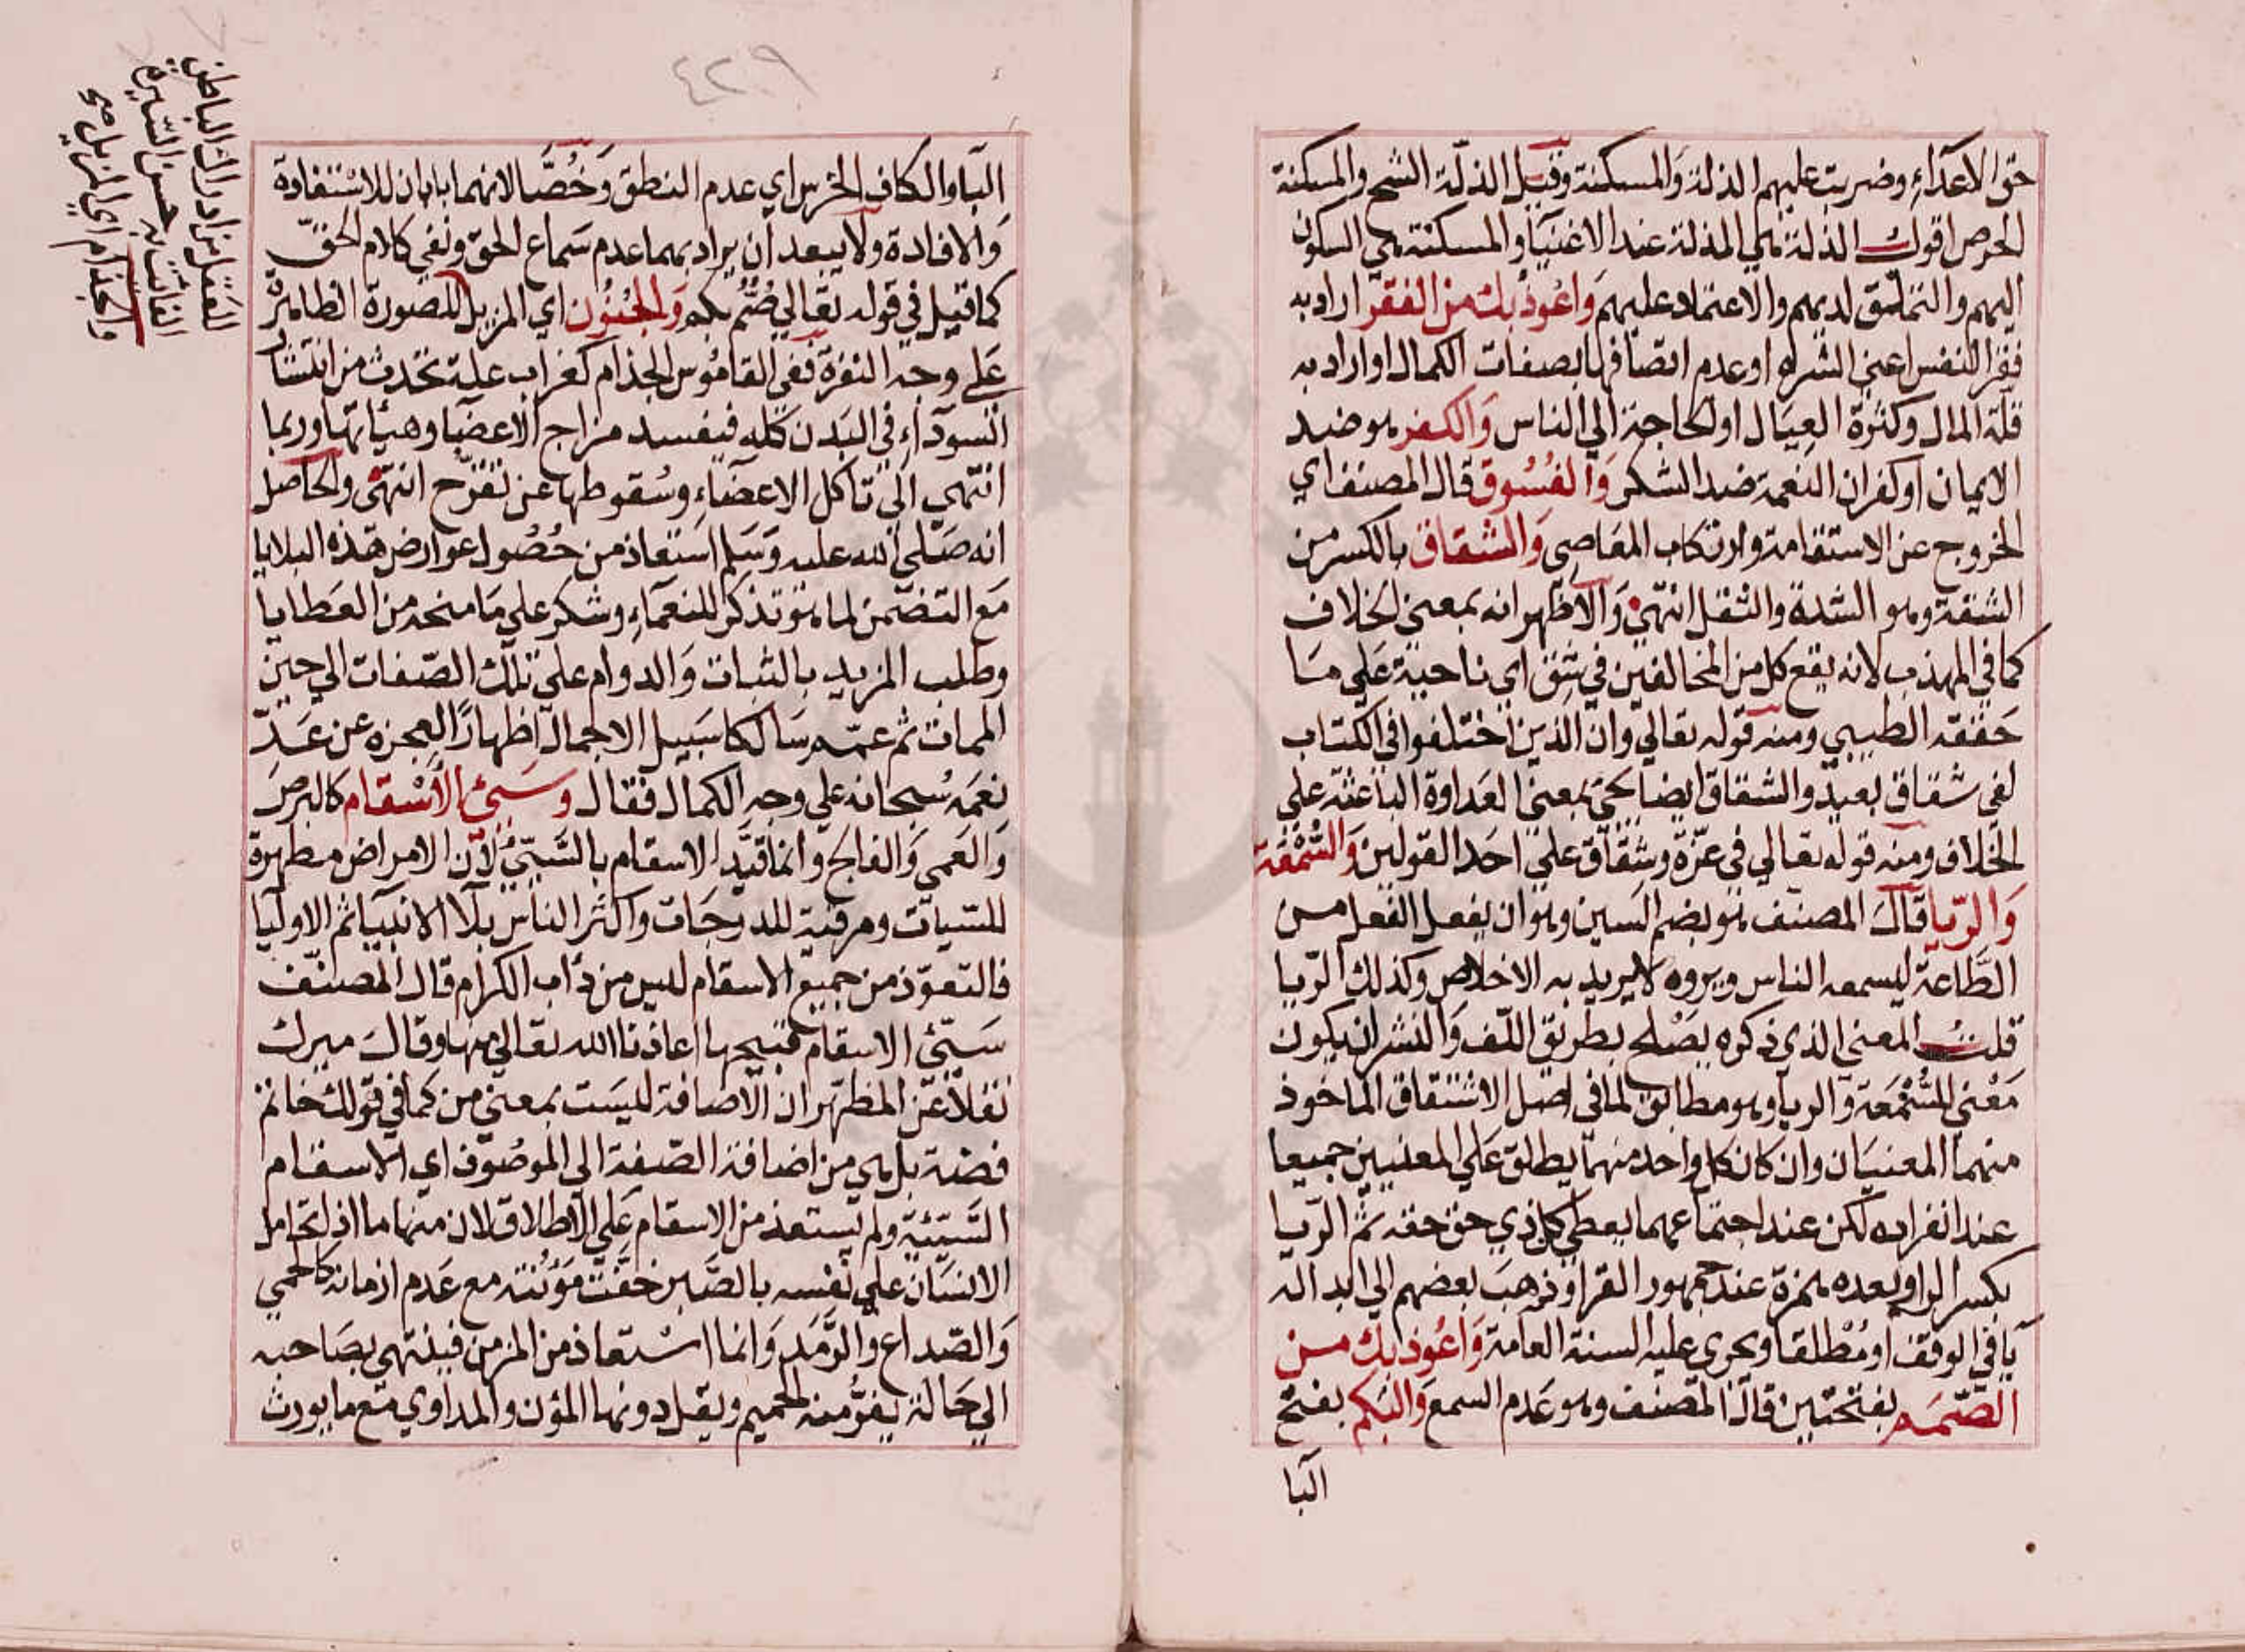 حق الاعداء وضربت عليهم الذلة والمسكنة وقيل الذلة الشح والمسكنة
الحرص اقول الذلة هي المذلة عند الاغنيا والمسكنة هي السكون
اليهم والتملق لديهم والاعتماد عليهم واعوذ بك من الفقر اراد به
فقر النفس اعني الشره او عدم اتصافها بصفات الكمال او اراد به
قلة المال وكثرة العيال او الحاجة الي الناس والكفر هو ضد
الايمان او كفران النعمة ضد الشكر والفسوق قال المصنف اي
الخروج عن الاستقامة وارتكاب المعاصي والشقاق بالكسر من
الشقة وهو الشدة والثقل انتهي والاظهر انه بمعني الخلاف
كما في المهذب لانه يقع كل من المخالفين في شق اي ناحية علي ما
حققه الطيبي ومنه قوله تعالي وان الذين اختلفوا في الكتاب
لفي شقاق بعيد والشقاق ايضا يجئ بمعني العداوة الباعثة علي
الخلاف ومنه قوله تعالي في عزة وشقاق علي احد القولين والسمعة
والريا قال المصنف هو بضم السين وهو ان يفعل الفعل من
الطاعة ليسمعه الناس ويروه لا يريد به الاخلاص وكذلك الريا
قلت المعني الذي ذكره يصلح بطريق اللف والنشر ان يكون
معني للسمعة والريا وهو مطابق لما في اصل الاشتقاق الماخوذ
منهما المعنيان وان كان كل واحد منهما يطلق علي المعنيين جميعا
عند انفراده لكن عند اجتماعهما يعطي كل ذي حق حقه ثم الريا
بكسر الرا وبعده همزة عند جمهور القرا وذهب بعضهم الي ابداله
يا في الوقف او مطلقا ويجري عليه السنة العامة واعوذ بك من
الصمم بفتحتين قال المصنف وهو عدم السمع والبكم بفتح
البا
٤٢٩
البا والكاف الخرس اي عدم النطق وخصا لانهما بابان للاستفادة
والافادة ولا يبعد ان يراد بهما عدم سماع الحق ونفي كلام الحق
كما قيل في قوله تعالي صم بكم والجنون اي المزيل للصورة الظاهرة
علي وجه النفرة ففي القاموس الجذام كغراب علة تحدث من انتشار
السوداء في البدن كله فيفسد مزاج الاعضا وهيأتها وربما
انتهي الي تاكل الاعضاء وسقوطها عن تقرح انتهي والحاصل
انه صلي الله عليه وسلم استعاذ من حصول عوارض هذه البلايا
مع التضمن لما هو تذكر للنعماء وشكر علي ما منحه من العطايا
وطلب المزيد بالثبات والدوام علي تلك الصفات الي حين
الممات ثم عمم سالكا سبيل الاجمال اظهارا لعجزه عن عد
نعمه سبحانه علي وجه الكمال فقال وسيئ الاسقام كالبرص
والعمي والفالج وانما قيد الاسقام بالسيئ لان الامراض مطهرة
للسيات ومرقية للدرجات واكثر الناس بلاا الانبيا ثم الاوليا
فالتعوذ من جميع الاسقام ليس من داب الكرام قال المصنف
سيئ الاسقام قبيحها اعاذنا الله تعالي منها وقال ميرك
نقلا عن المظهر ان الاضافة ليست بمعني من كما في قولك خاتم
فضة بل هي من اضافة الصفة الي الموصوف اي الاسقام
السيئة ولم يستعذ من الاسقام علي الاطلاق لان منها ما اذا تحامل
الانسان علي نفسه بالصبر خفت مؤنته مع عدم ازمانه كالحمي
والصداع والرمد وانما استعاذ من المزمن فينتهي بصاحبه
الي حالة يفر منه الحميم ويقل دونها المؤن والمداوي مع ما يورث
العقل من ادراك الباطن
الفائت به حسن السيرة
والجذام اي المزيل صح